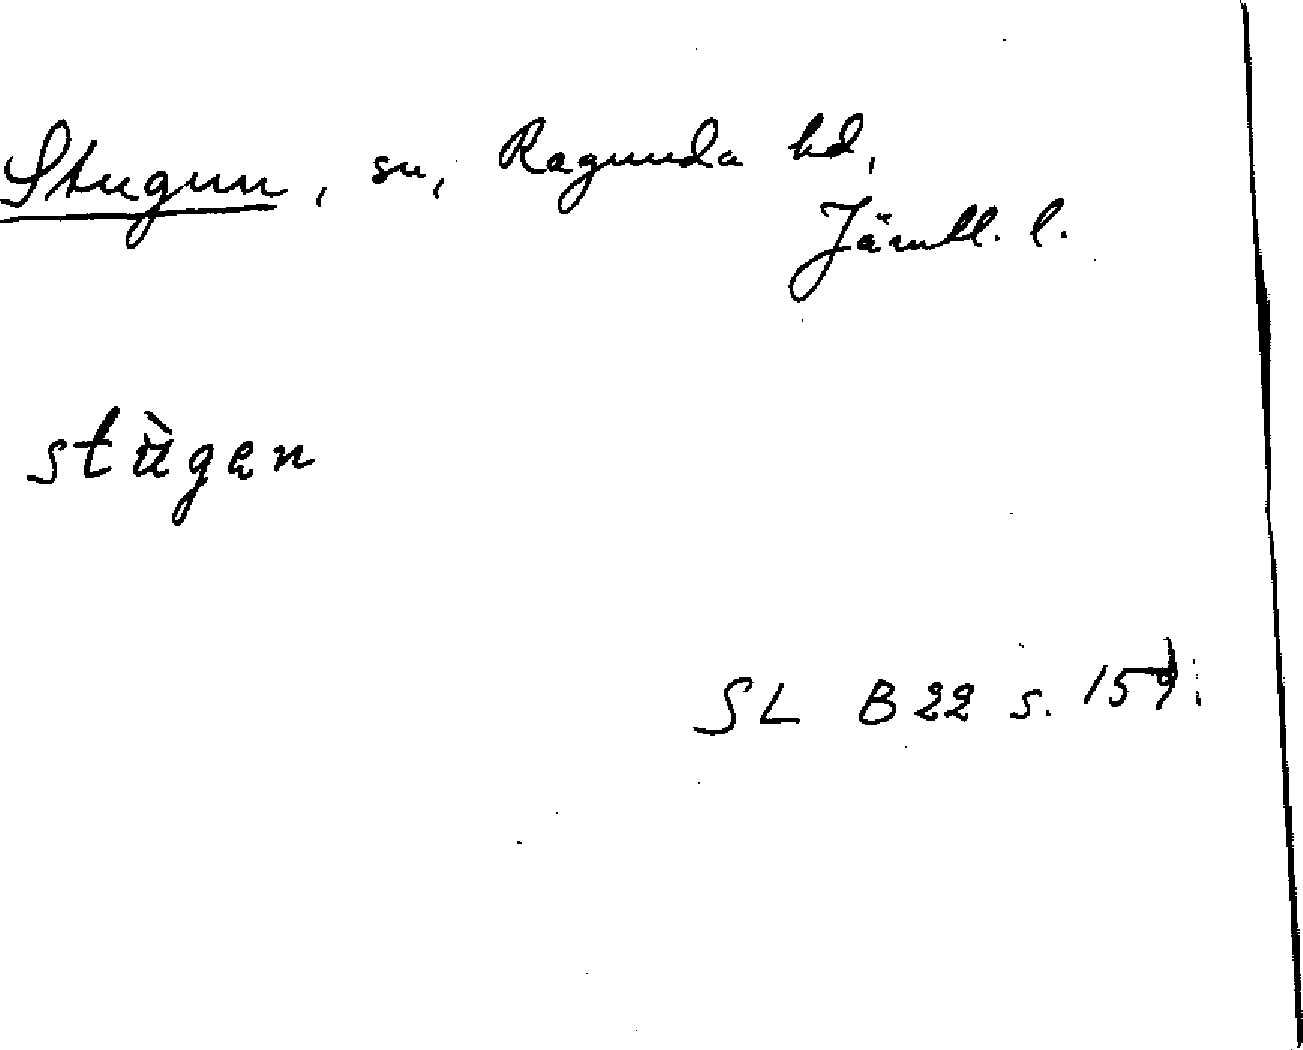 Stugun, sn, Ragunda hd,
Jämtl. l.
stùgan
SL B 22 s. 157